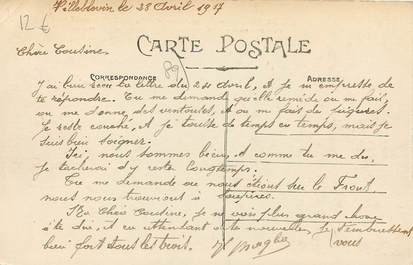 Villeblevin le 28 Avril 1917
12 €
Chère Cousine
CARTE POSTALE
CORRESPONDANCE
ADRESSE
89
J'ai bien reçu ta lettre du 24 avril, et je m'empresse de
te répondre. Tu me demande quelle remide on m'a fait,
on me donne des ventouses, et on m'a fait des piqures.
Je reste couché, et je tousse de temps en temps, mais je
suis bien soigner.
Ici nous sommes bien, et comme tu me dis
je tacherai d'y reste longtemps.
Tu me demande ou nous étions sur le Front
nous nous trouvions à Soupires.
Chère Cousine, je ne vois plus grand chose
à te dire, et en attendant de te nouvelles, je t'embrasse
bien fort tous les trois.
vous